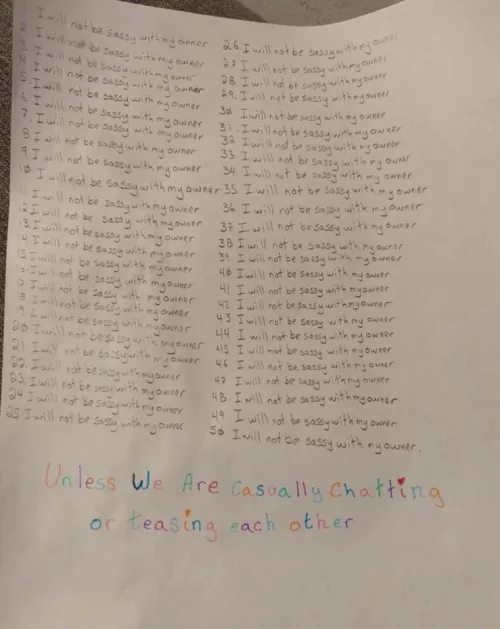 1 I will not be sassy with my owner
2 I will not be sassy with my owner
3 I will not be sassy with my owner
4 I will not be sassy with my owner
5 I will not be sassy with my owner
6 I will not be sassy with my owner
7. I will not be sassy with my owner
8 I will not be sassy with my owner
9 I will not be sassy with my owner
10 I will not be sassy with my owner
11 I will not be sassy with my owner
12 I will not be sassy with my owner
13 I will not be sassy with my owner
14 I will not be sassy with my owner
15 I will not be sassy with my owner
16 I will not be sassy with my owner
17 I will not be sassy with my owner
18 I will not be sassy with my owner
19 I will not be sassy with my owner
20 I will not be sassy with my owner
21 I will not be sassy with my owner
22. I will not be sassy with my owner
23. I will not be sassy with my owner
24 I will not be sassy with my owner
25 I will not be sassy with my owner
26 I will not be sassy with my owner
27 I will not be sassy with my owner
28 I will not be sassy with my owner
29. I will not be sassy with my owner
30 I will not be sassy with my owner
31. I will not be sassy with my owner
32 I will not be sassy with my owner
33. I will not be sassy with my owner
34 I will not be sassy with my owner
35 I will not be sassy with my owner
36 I will not be sassy with my owner
37 I will not be sassy with my owner
38 I will not be sassy with my owner
39 I will not be sassy with my owner
40 I will not be sassy with my owner
41 I will not be sassy with my owner
42 I will not be sassy with my owner
43 I will not be sassy with my owner
44 I will not be sassy with my owner
45 I will not be sassy with my owner
46 I will not be sassy with my owner
47 I will not be sassy with my owner
48 I will not be sassy with my owner
49 I will not be sassy with my owner
50 I will not be sassy with my owner.
Unless We Are Casually Chatting
or teasing each other